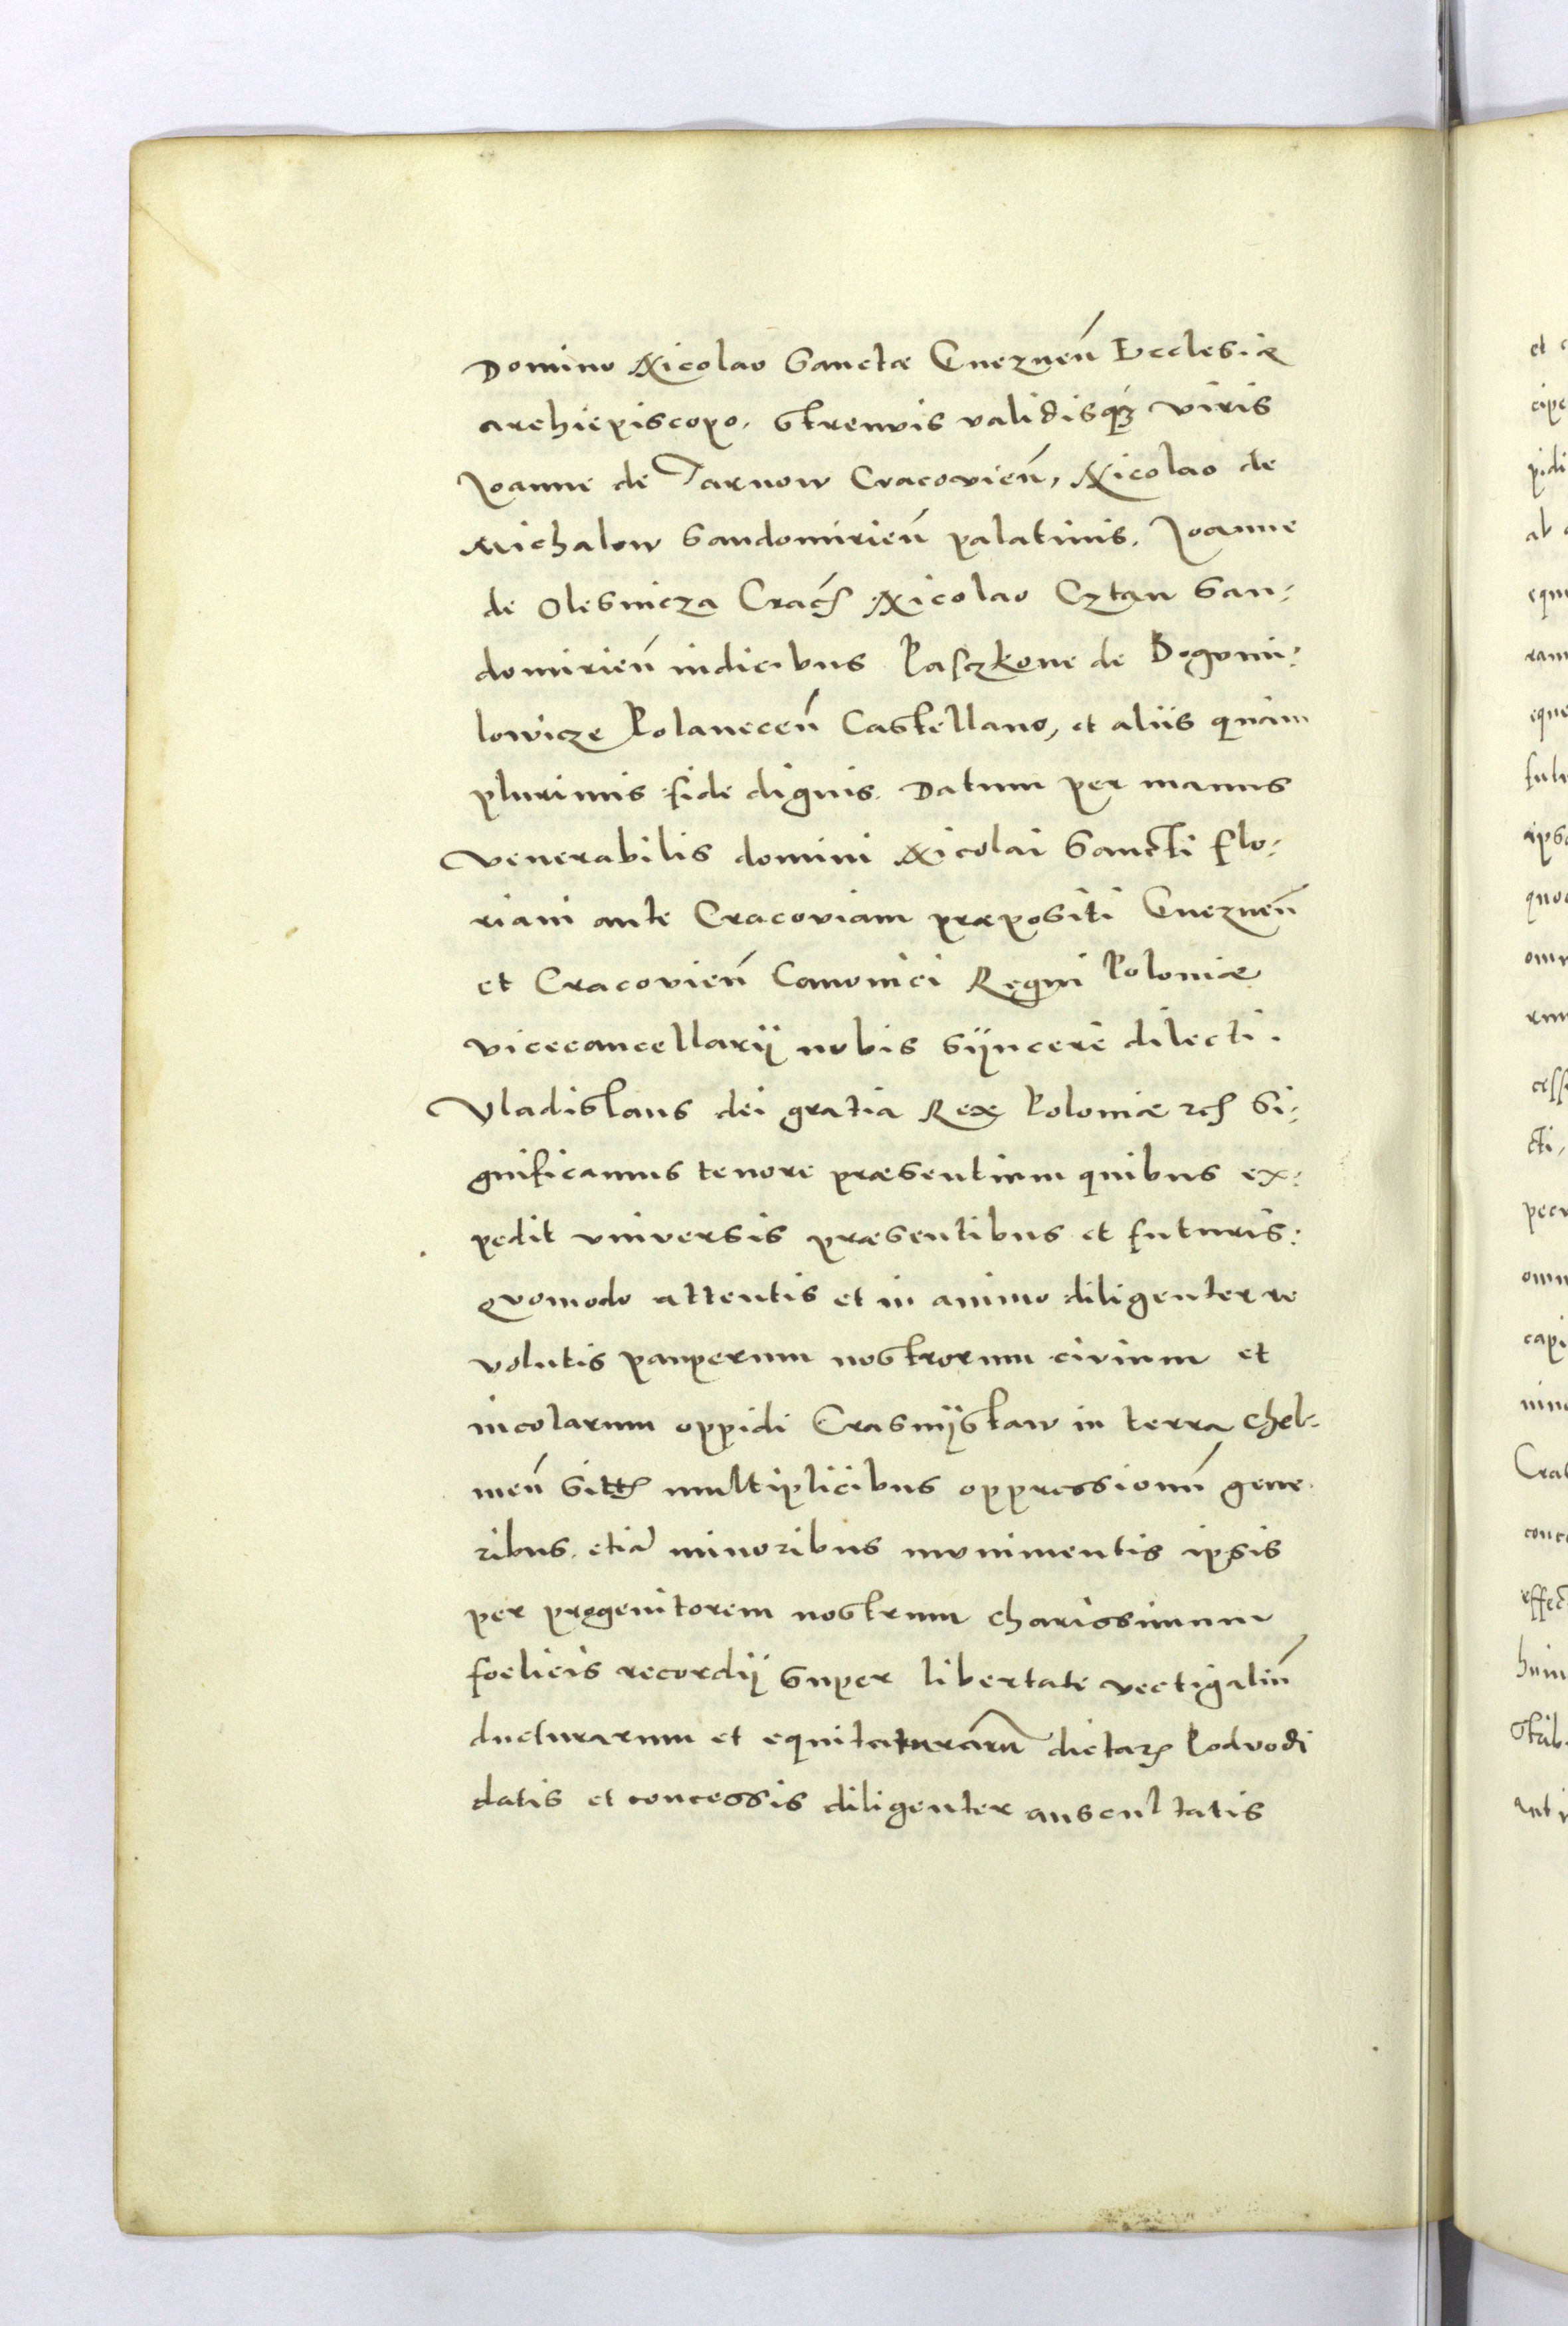 Domino Nicolao Sanctæ Gneznen̄ Ecclesiæ
archiepiscopo. Strenuis validisqꝫ viris
Joanne de Tarnow Cracovien̄, Nicolao de
Michalow Sandomirien̄ palatinis. Joanne
de Olesnicza Crac̄ Nicolao Cztan San:
domirien̄ iudicibus Pasczkone de Bogumi:
lowicze Polanecen̄ Castellano, et aliis quàm
plurimis fide dignis. Datum per manus
venerabilis domini Nicolai Sancti Flo:
riani ante Cracoviam præpositi Gneznen̄
et Cracovien̄ Canonici Regni Poloniæ
vicecancellarij nobis sijncerè dilecti.
Vladislaus dei gratia Rex Poloniæ ꝛcꝭ Si:
gnificamus tenore præsentium quibus ex:
pedit vniversis præsentibus et futuris:
quomodo attentis et in animo diligenter re
volutis pauperum nostrorum civium et
incolarum oppidi Crasnijstaw in terra Chel:
men̄ sittꝭ multiplicibus oppressionū gene
ribus. etiā minoribus munimentis ipsis
per progenitorem nostrum charissimum
foelicis recordij super libertate vectigaliū
ducturarum et equitaturarū dictaꝝ Podvodi
datis et concessis diligenter auscultatis
et
cipe
pidi
ab
equi
ram
eque
fulu
ipsa
quod
omn
rum
cess
cti,
pecu
omn
capi
Cra
conc
effec
huiu